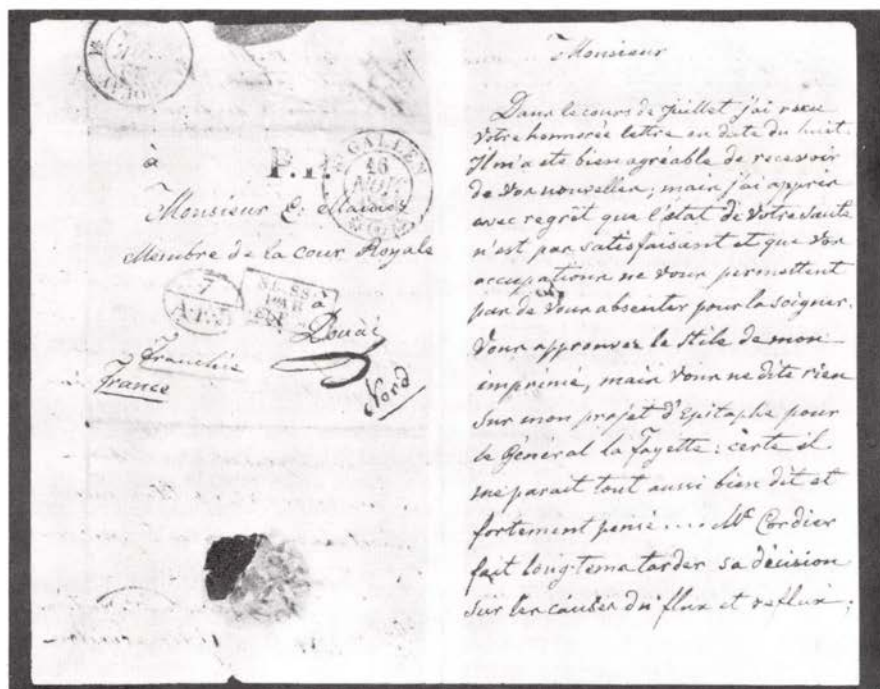 P.P.
ST GALLEN
16
NOV.
à
Monsieur
Membre de la cour Royale
à
Douai
Franchie
France
Nord
SUISSE
PAR
Monsieur
Dans le cours de Juillet j'ai reçu
Votre honnorée lettre en date du huit.
Il m'a eté bien agréable de recevoir
de vos nouvelles; mais j'ai appris
avec regrèt que l'état de Votre santé
n'est pas satisfaisant et que vos
occupations ne vous permettent
pas de vous absenter pour la soigner.
Vous approuvez le stile de mon
imprimé, mais vous ne dite rien
sur mon projet d'Epitaphe pour
le Général la fayette: certe il
me parait tout aussi bien dit et
fortement pensé.... Mr Cordier
fait long-tems tarder sa décision
sur les causes du flux et reflux;